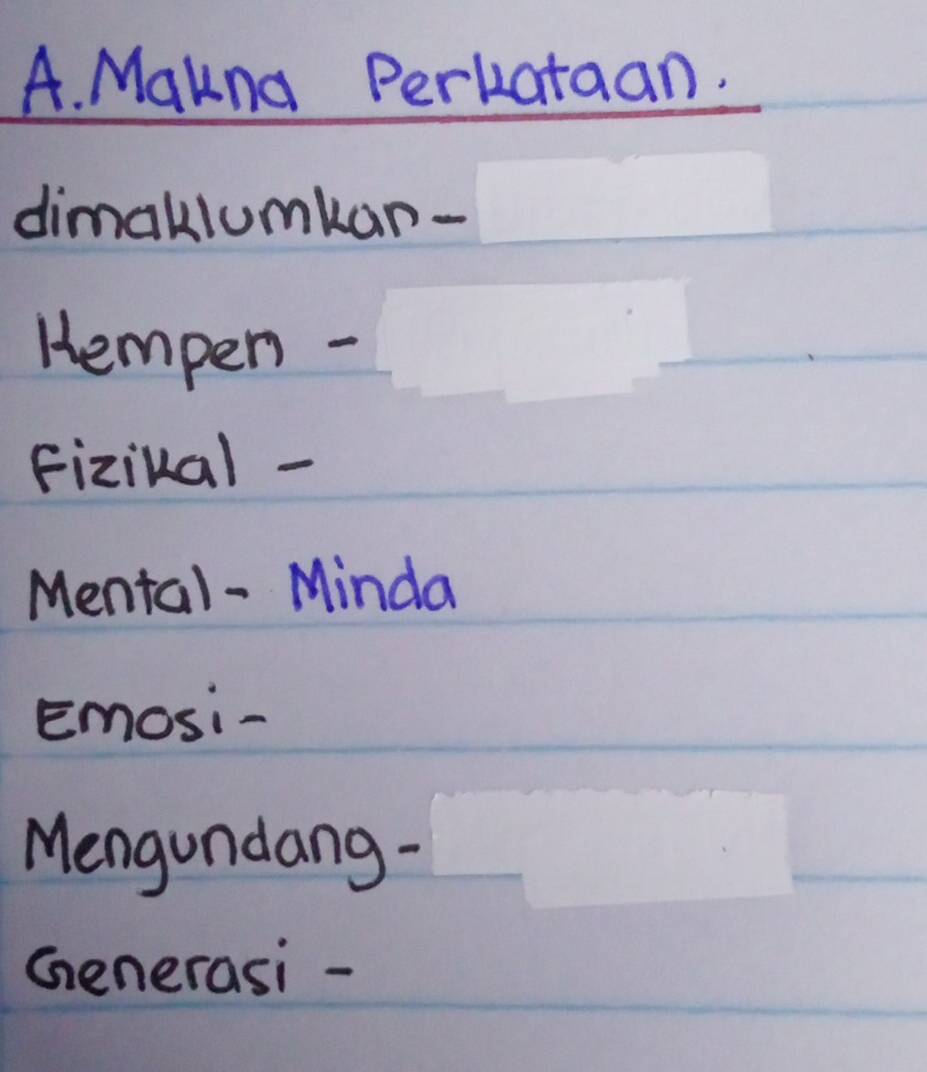 A. Makna Perkataan.
dimaklumkan -
Kempen -
Fizikal -
Mental - Minda
Emosi -
Mengundang -
Generasi -